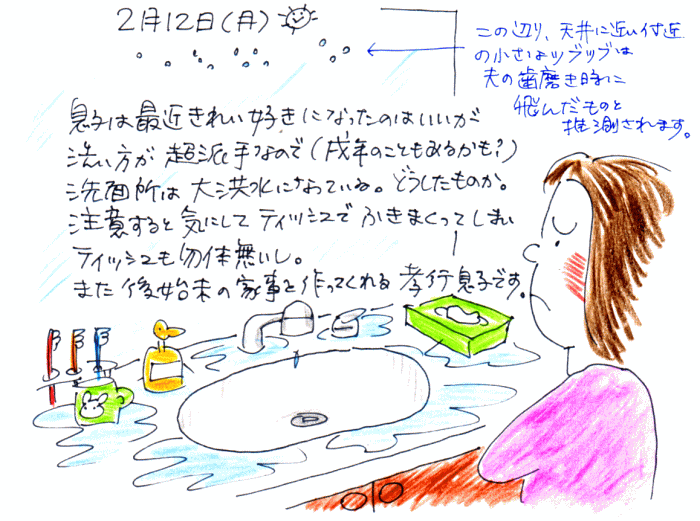 2月12日(月)
この辺り、天井に近い付近
の小さなツブツブは
夫の歯磨き時に
飛んだものと
推測されます。
息子は最近きれい好きになったのはいいが
洗い方が超派手なので(戌年のこともあるかも?)
洗面所は大洪水になっている。どうしたものか。
注意すると気にしてティッシュでふきまくってしまい
ティッシュも勿体無いし。
また後始末の家事を作ってくれる孝行息子です。